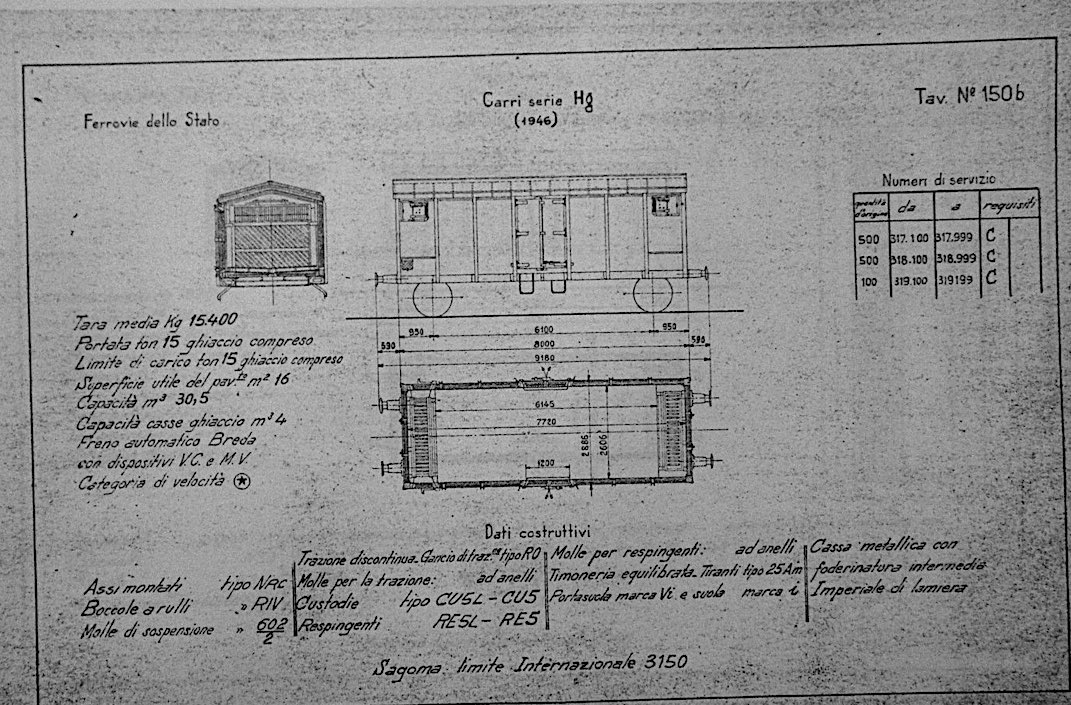 Ferrovie dello Stato
Carri serie Hg
(1946)
Tav. Nº 150b
Numeri di servizio
quantità d'origine da a requisiti
500 317.100 317.999 C
500 318.100 318.999 C
100 319.100 319199 C
Tara media Kg 15.400
Portata ton 15 ghiaccio compreso
Limite di carico ton 15 ghiaccio compreso
Superficie utile del pav.to m² 16
Capacità m³ 30,5
Capacità casse ghiaccio m³ 4
Freno automatico Breda
con dispositivi V.C. e M.V.
Categoria di velocità ★
950 6100 950
590 8000 590
9180
6145
7720
2886
2606
1200
Dati costruttivi
Assi montati tipo NRC
Boccole a rulli " RIV
Molle di sospensione " 602/2
Trazione discontinua - Gancio di traz.ne tipo RO
Molle per la trazione: ad anelli
Custodie tipo CUSL - CUS
Respingenti RESL - RES
Molle per respingenti: ad anelli
Timoneria equilibrata - Tiranti tipo 25Am
Portasuola marca Vi. e suola marca i
Cassa metallica con
foderinatura intermedia
Imperiale di lamiera
Sagoma limite Internazionale 3150